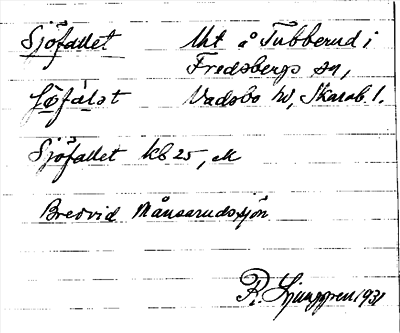 Sjöfallet Uht å Tubberud i
Fredsbergs sn,
Vadsbo hd, Skarab. l.
Sjöfallet kb 25, ek
Bredvid Månsarudssjön
R. Ljunggren 1931